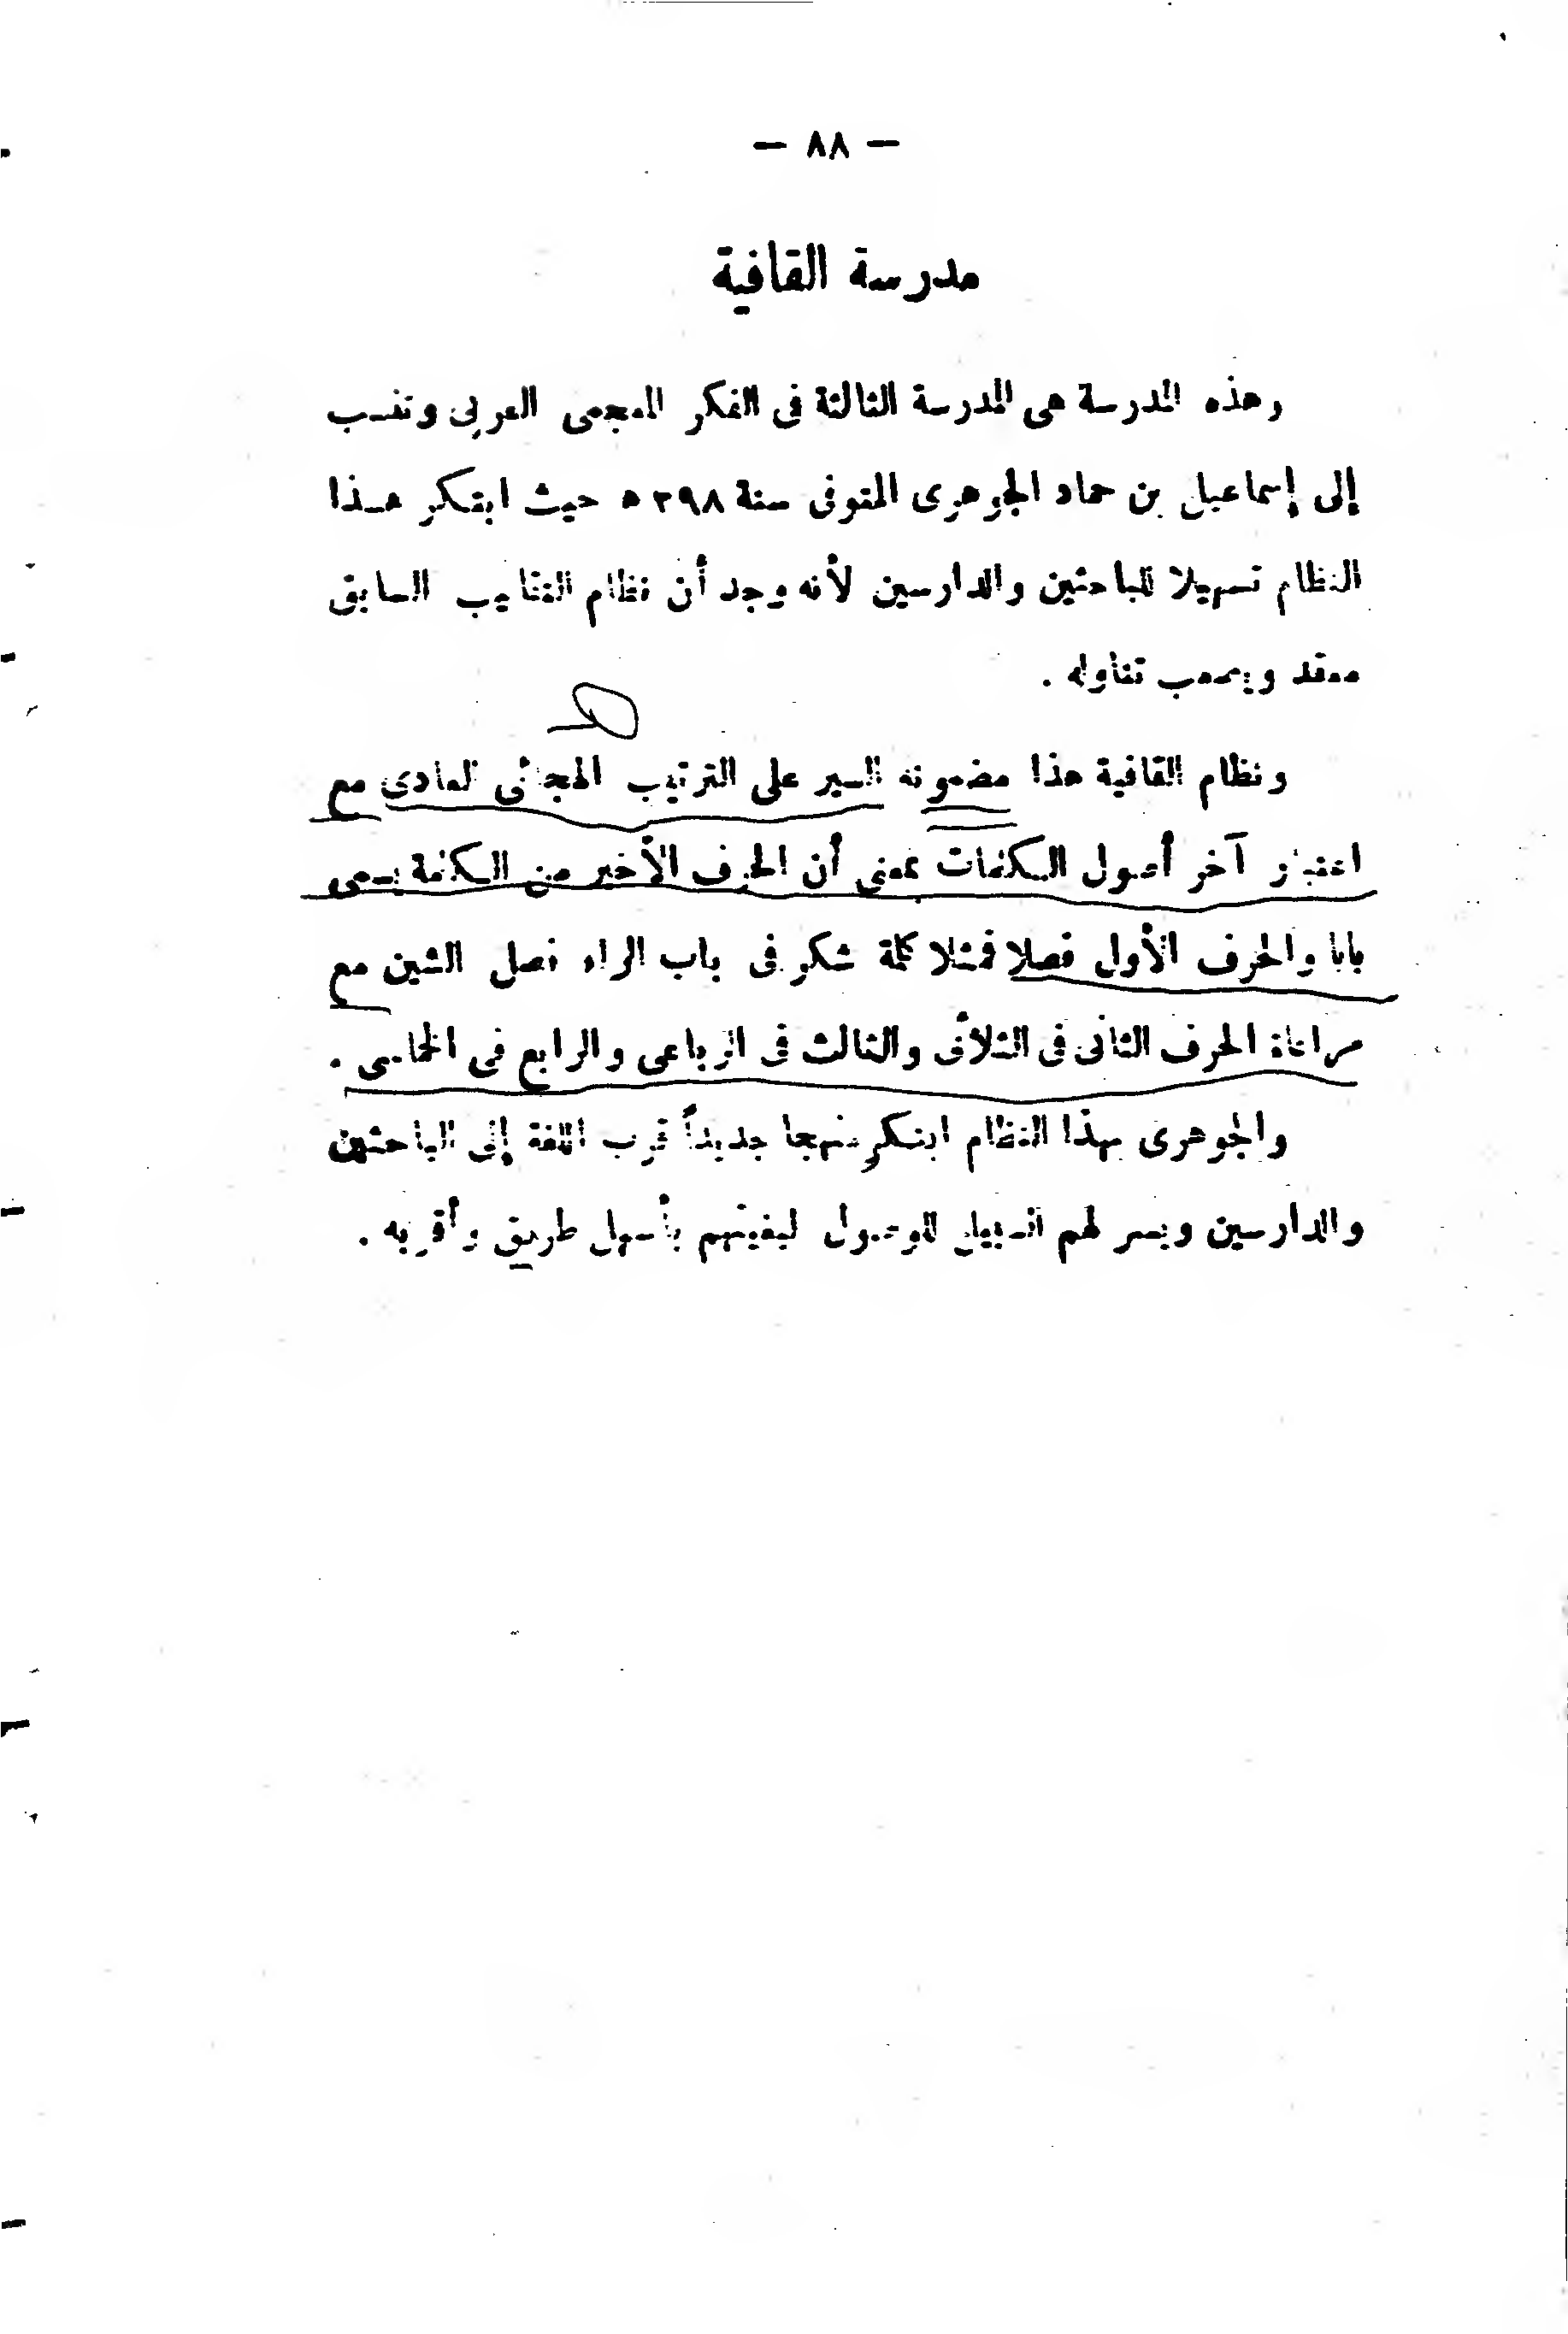 — ٨٨ —
مدرسة القافية
وهذه المدرسة هى المدرسة الثالثة فى الفكر المعجمى العربى وتنسب
إلى إسماعيل بن حماد الجوهرى المتوفى سنة ٣٩٨ ه حيث ابتكر هذا
النظام تسهيلا للباحثين والدارسين لأنه وجد أن نظام التقاليب السابق
معقد ويصعب تناوله .
ونظام القافية هذا مضمونه السير على الترتيب الهجائى العادى مع
اعتبار آخر أصول الكلمات بمعنى أن الحرف الأخير من الكلمة يسمى
بابا والحرف الأول فصلا فمثلا كلمة شكر فى باب الراء فصل الشين مع
مراعاة الحرف الثانى فى الثلاثى والثالث فى الرباعى والرابع فى الخماسى .
والجوهرى بهذا النظام ابتكر منهجا جديداً قرب اللغة إلى الباحثين
والدارسين ويسر لهم السبيل للوصول لبغيتهم بأسهل طريق وأقربه .